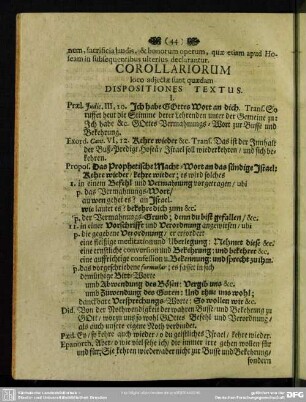 (44)
nem, sacrificia laudis, & bonorum operum, quæ etiam apud Ho-
seam in subsequentibus ulterius declarantur.
COROLLARIORUM
loco adjectæ sunt quædam
DISPOSITIONES TEXTUS.
I.
Præl. Judic. III, 20. Ich habe GOttes Wort an dich. Transl. So
ruffet heut die Stimme derer Lehrenden unter der Gemeine zu:
Ich habe &c. GOttes Vermahnungs-Wort zur Busse und
Bekehrung.
Exord. Cant. VI, 12. Kehre wieder &c. Transl. Das ist der Innhalt
der Buß-Predigt Hoseä: Israel soll wiederkehren/ und sich be-
kehren.
Propos. Das Prophetische Macht-Wort an das sündige Israel:
Kehre wieder/ kehre wieder; es wird solches
1. in einem Befehl und Vermahnung vorgetragen/ ubi
p. das Vermahnungs-Wort/
an wen gehet es? an Israel.
wie lautet es? bekehre dich zum &c.
p. der Vermahnungs-Grund; denn du bist gefallen/ &c.
11. in einer Vorschrifft und Verordnung angewiesen/ ubi
p. die gegebene Verordnung/ er erfordert
eine fleißige meditation und Uberlegung: Nehmet diese &c.
eine ernstliche conversion und Bekehrung; und bekehret &c.
eine auffrichtige confession u. Bekenntnung; und sprecht zu ihm.
p. das vorgeschriebene formular; en fasset in sich
demüthige Bitt-Worte
um Abwendung des Bösen: Vergib uns &c.
um Zuwendung des Guten: Und thue uns wohl;
danckbare Versprechungs-Worte: So wollen wir &c.
Did. Von der Nothwendigkeit der wahren Busse und Bekehrung zu
GOtt/ worzu uns so wohl GOttes Befehl und Verordnung/
als auch unsere eigene Noth verbindet.
Pæd. Ey/ so kehre auch wieder/ o du geistliches Israel/ kehre wieder.
Epanorth. Aber/ o wie viel sehe ich/ die immer irre gehen wollen für
und für; Sie kehren wieder aber nicht zur Busse und Bekehrung/
sondern